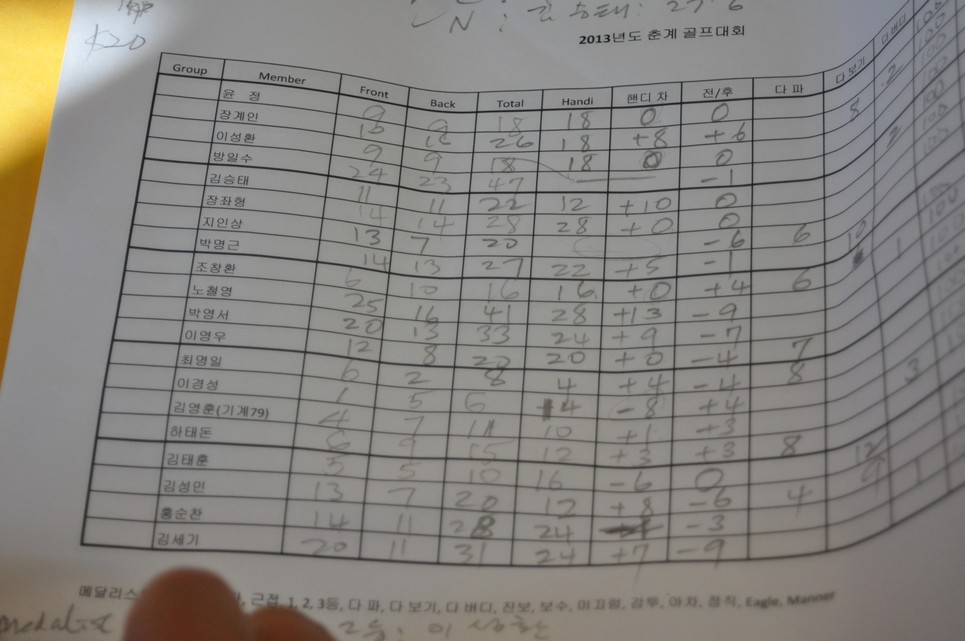 $20
N : 김승태 : 27.6
2013년도 춘계 골프대회
Group Member Front Back Total Handi 핸디 차 전/후 다 파 다 보기 다 버디
윤 정 9 9 18 18 0 0 8 2
장계인 26 18 +8 +6
이성환 9 9 18 18 0 0 2
방일수 24 23 47 -1
김승태 11 11 22 12 +10 0
장좌형 14 14 28 28 +0 0
지인상 13 7 20 -6 6 10
박명근 14 13 27 22 +5 -1
조창환 6 10 16 16 +0 +4 6
노철영 25 16 41 28 +13 -9
박영서 20 13 33 24 +9 -7
이영우 12 8 20 20 +0 -4 7
최명일 6 2 8 4 +4 -4 8 3
이경성 1 5 6 14 -8 +4
김영훈(기계79) 4 7 11 10 +1 +3
하태돈 6 9 15 12 +3 +3 8 12
김태훈 5 5 10 16 -6 0
김성민 13 7 20 12 +8 -6 4
홍순찬 14 11 28 24 -3
김세기 20 11 31 24 +7 -9
메달리스 근접, 1, 2, 3등, 다 파, 다 보기, 다 버디, 진보, 보수, 미끄럼, 감투, 아차, 정직, Eagle, Manner
medalist